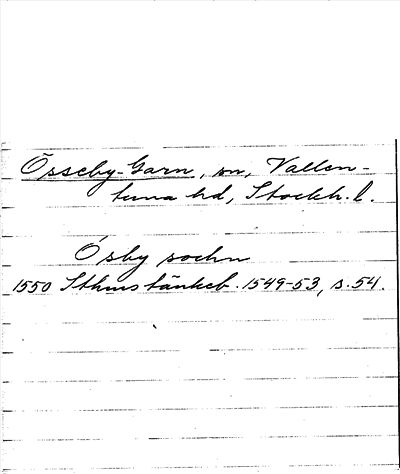 Össeby-Garn, sn, Vallen-
tuna hd, Stockh. l.
Ösby sochn
1550 Sthms tänkeb. 1549-53, s. 54.